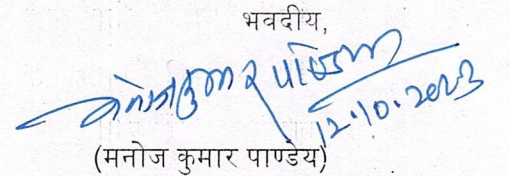 भवदीय,
मनोज कुमार पाण्डेय
12.10.2023
(मनोज कुमार पाण्डेय)